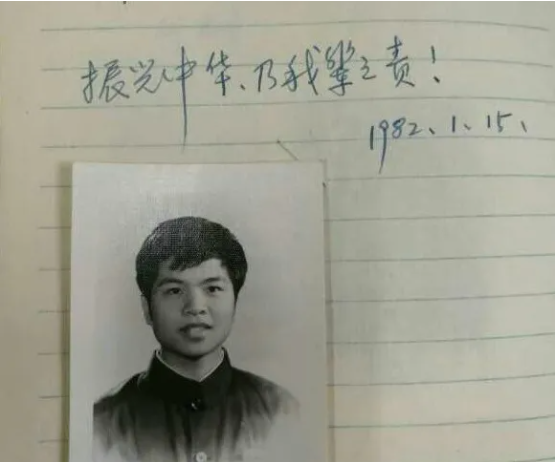 振兴中华、乃我辈之责!
1982、1、15、